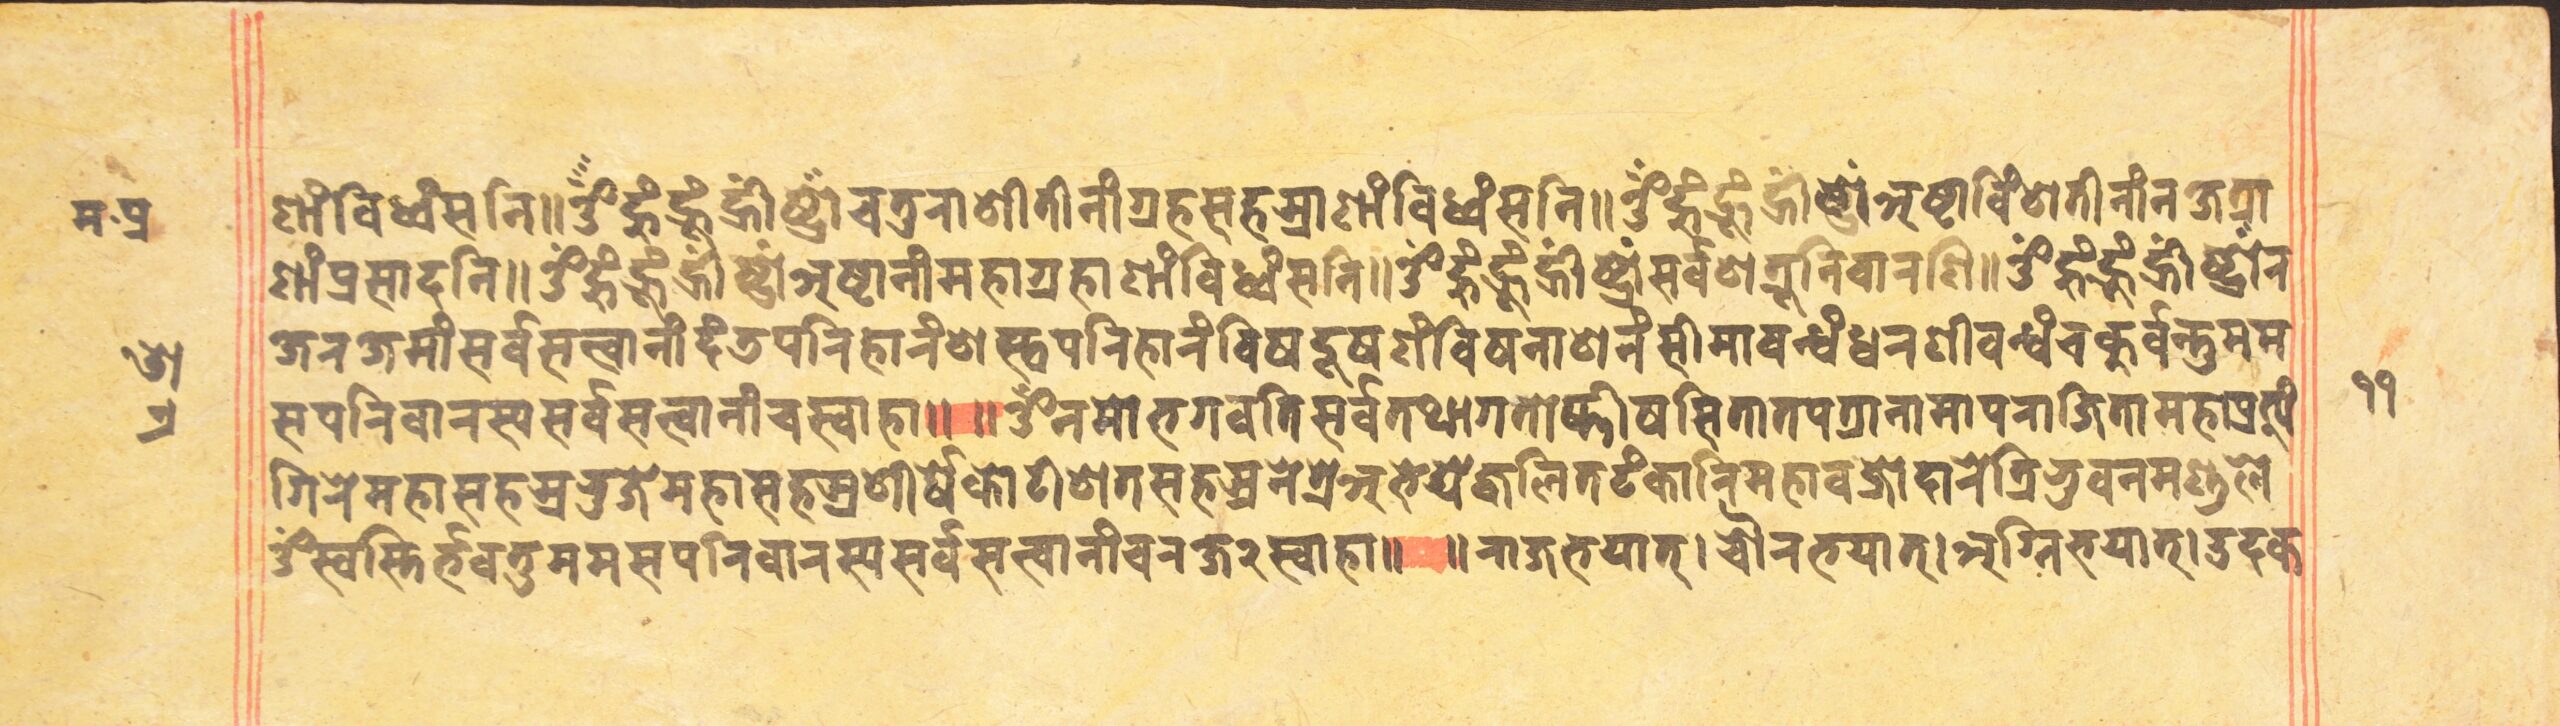 म·प्र
णां विध्वंसनि॥ ॐ हुं ह्रूं ह्रीं ष्ट्रों चतुराशीतीनां ग्रहसहस्राणां विध्वंसनि॥ ॐ हुं ह्रूं ह्रीं ष्ट्रों अष्टाविंशतीनां नक्षत्रा
णां प्रसादनि॥ ॐ हुं ह्रूं ह्रीं ष्ट्रों अष्टानां महाग्रहाणां विध्वंसनि॥ ॐ हुं ह्रूं ह्रीं ष्ट्रों सर्वशत्रूनिवारणि॥ ॐ हुं ह्रूं ह्रीं ष्ट्रों र
क्षरक्षमां सर्वसत्वानां दंडपरिहारं शस्त्रपरिहारं विषदूषणं विषनाशनं सीमाबन्धं धरणीबन्धं च कुर्वन्तु मम
सपरिवारस्य सर्वसत्वानां च स्वाहा॥ ॥ ॐ नमो भगवति सर्वतथागतोष्णीषसितातपत्रानामापराजिता महाप्रत्यं
गिरे महासहस्रभुजे महासहस्रशीर्षे कोटीशतसहस्रनेत्रे अभेद्ये ज्वलितटंकारि महावज्रोदारे त्रिभुवनमण्डले
ॐ स्वस्तिर्भवतु मम सपरिवारस्य सर्वसत्वानां च रक्ष२ स्वाहा॥ ॥ राजभयात्। चौरभयात्। अग्निभयात्। उदक
११